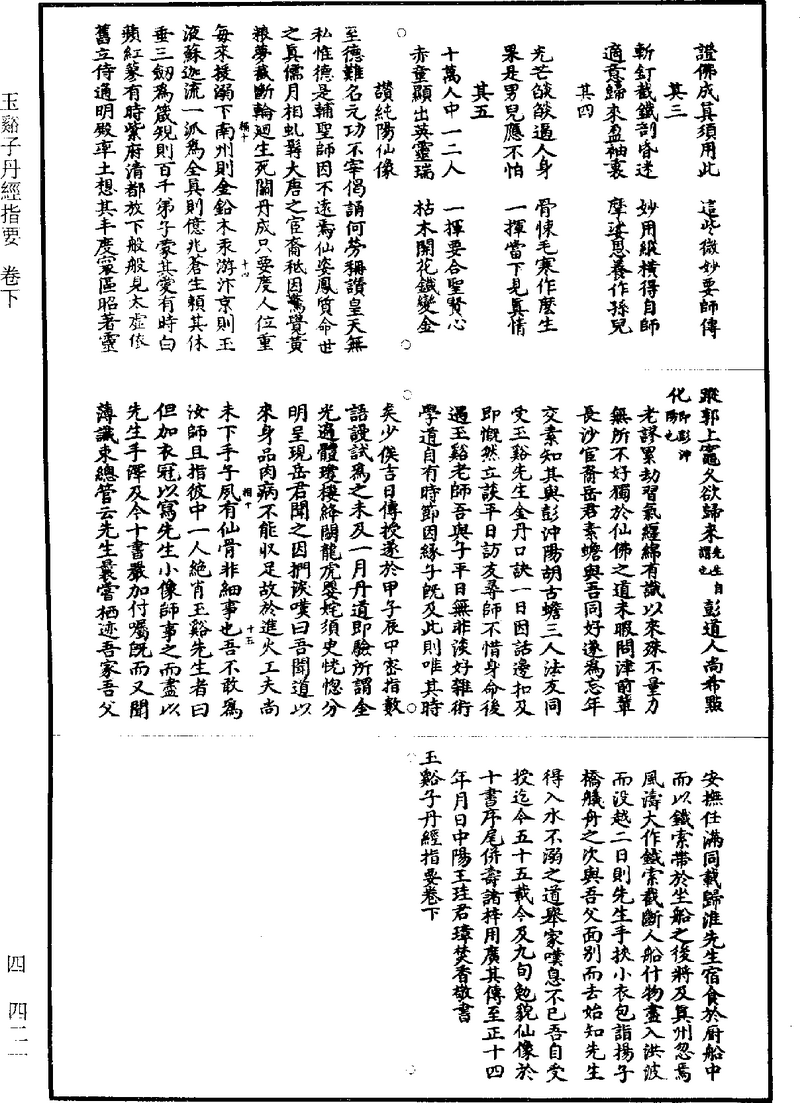 玉谿子丹經指要　卷下
四　四二一
證佛成真須用此　這些微妙要師傳
其三
斬釘截鐵剖昏迷　妙用縱橫得自師
適意歸來盈袖裏　摩挲恩養作孫兒
其四
光芒燄燄逼人身　骨悚毛寒作麼生
果是男兒應不怕　一揮當下見真情
其五
十萬人中一二人　一揮要合聖賢心
赤童顯出英靈瑞　枯木開花鐵變金
讚純陽仙像
至德難名元功不宰偈誦何勞稱讚皇天無
私惟德是輔聖師因不遠焉仙姿鳳質命世
之真儒月相虬髯大唐之宦裔秪因驚覺黃
粮夢截斷輪迴生死關丹成只要度人位重
每來援溺下南州則金鉛木汞游汴京則玉
液蘇迦流一派為全真則億兆蒼生賴其休
垂三劒為箴規則百千弟子蒙其愛有時白
蘋紅蓼有時紫府清都放下般般見太虛依
舊立侍通明殿率土想其丰度寰區昭著靈
蹤郭上竈久欲歸來先生自謂也彭道人尚希點
化即彭沖陽也
老謬累劫習氣纏綿有識以來殊不量力
無所不好獨於仙佛之道未暇問津前輩
長沙官裔岳君素蟾與吾同好遂為忘年
交素知其與彭沖陽胡古蟾三人法友同
受玉谿先生金丹口訣一日因話邊扣及
即慨然立談平日訪友尋師不惜身命後
遇玉谿老師吾與子平日無非淡好雜術
學道自有時節因緣子既及此則唯其時
矣少俟吉日傳授遂於甲子辰甲密指數
語謾試為之未及一月丹道即驗所謂金
光遍體瓊樓絳闕龍虎嬰姹須臾恍惚分
明呈現岳君聞之因捫涕嘆曰吾聞道以
來身品肉病不能收足故於進火工夫尚
未下手子夙有仙骨非細事也吾不敢為
汝師且指彼中一人絶肖玉谿先生者曰
但加衣冠以寫先生小像師事之而盡以
先生手澤及今十書嚴加付囑既而又聞
薄識束總管云先生曩嘗栖迹吾家吾父
安撫仕滿同載歸淮先生宿食於厨船中
而以鐵索帶於坐船之後將及真州忽焉
風濤大作鐵索截斷人船什物盡入洪波
而没越二日則先生手挾小衣包詣揚子
橋艤舟之次與吾父面別而去始知先生
得入水不溺之道舉家嘆息不已吾自受
授迄今五十五載今及九旬勉貌仙像於
十書序尾併壽諸梓用廣其傳至正十四
年月日中陽王珪君璋焚香敬書
玉谿子丹經指要卷下